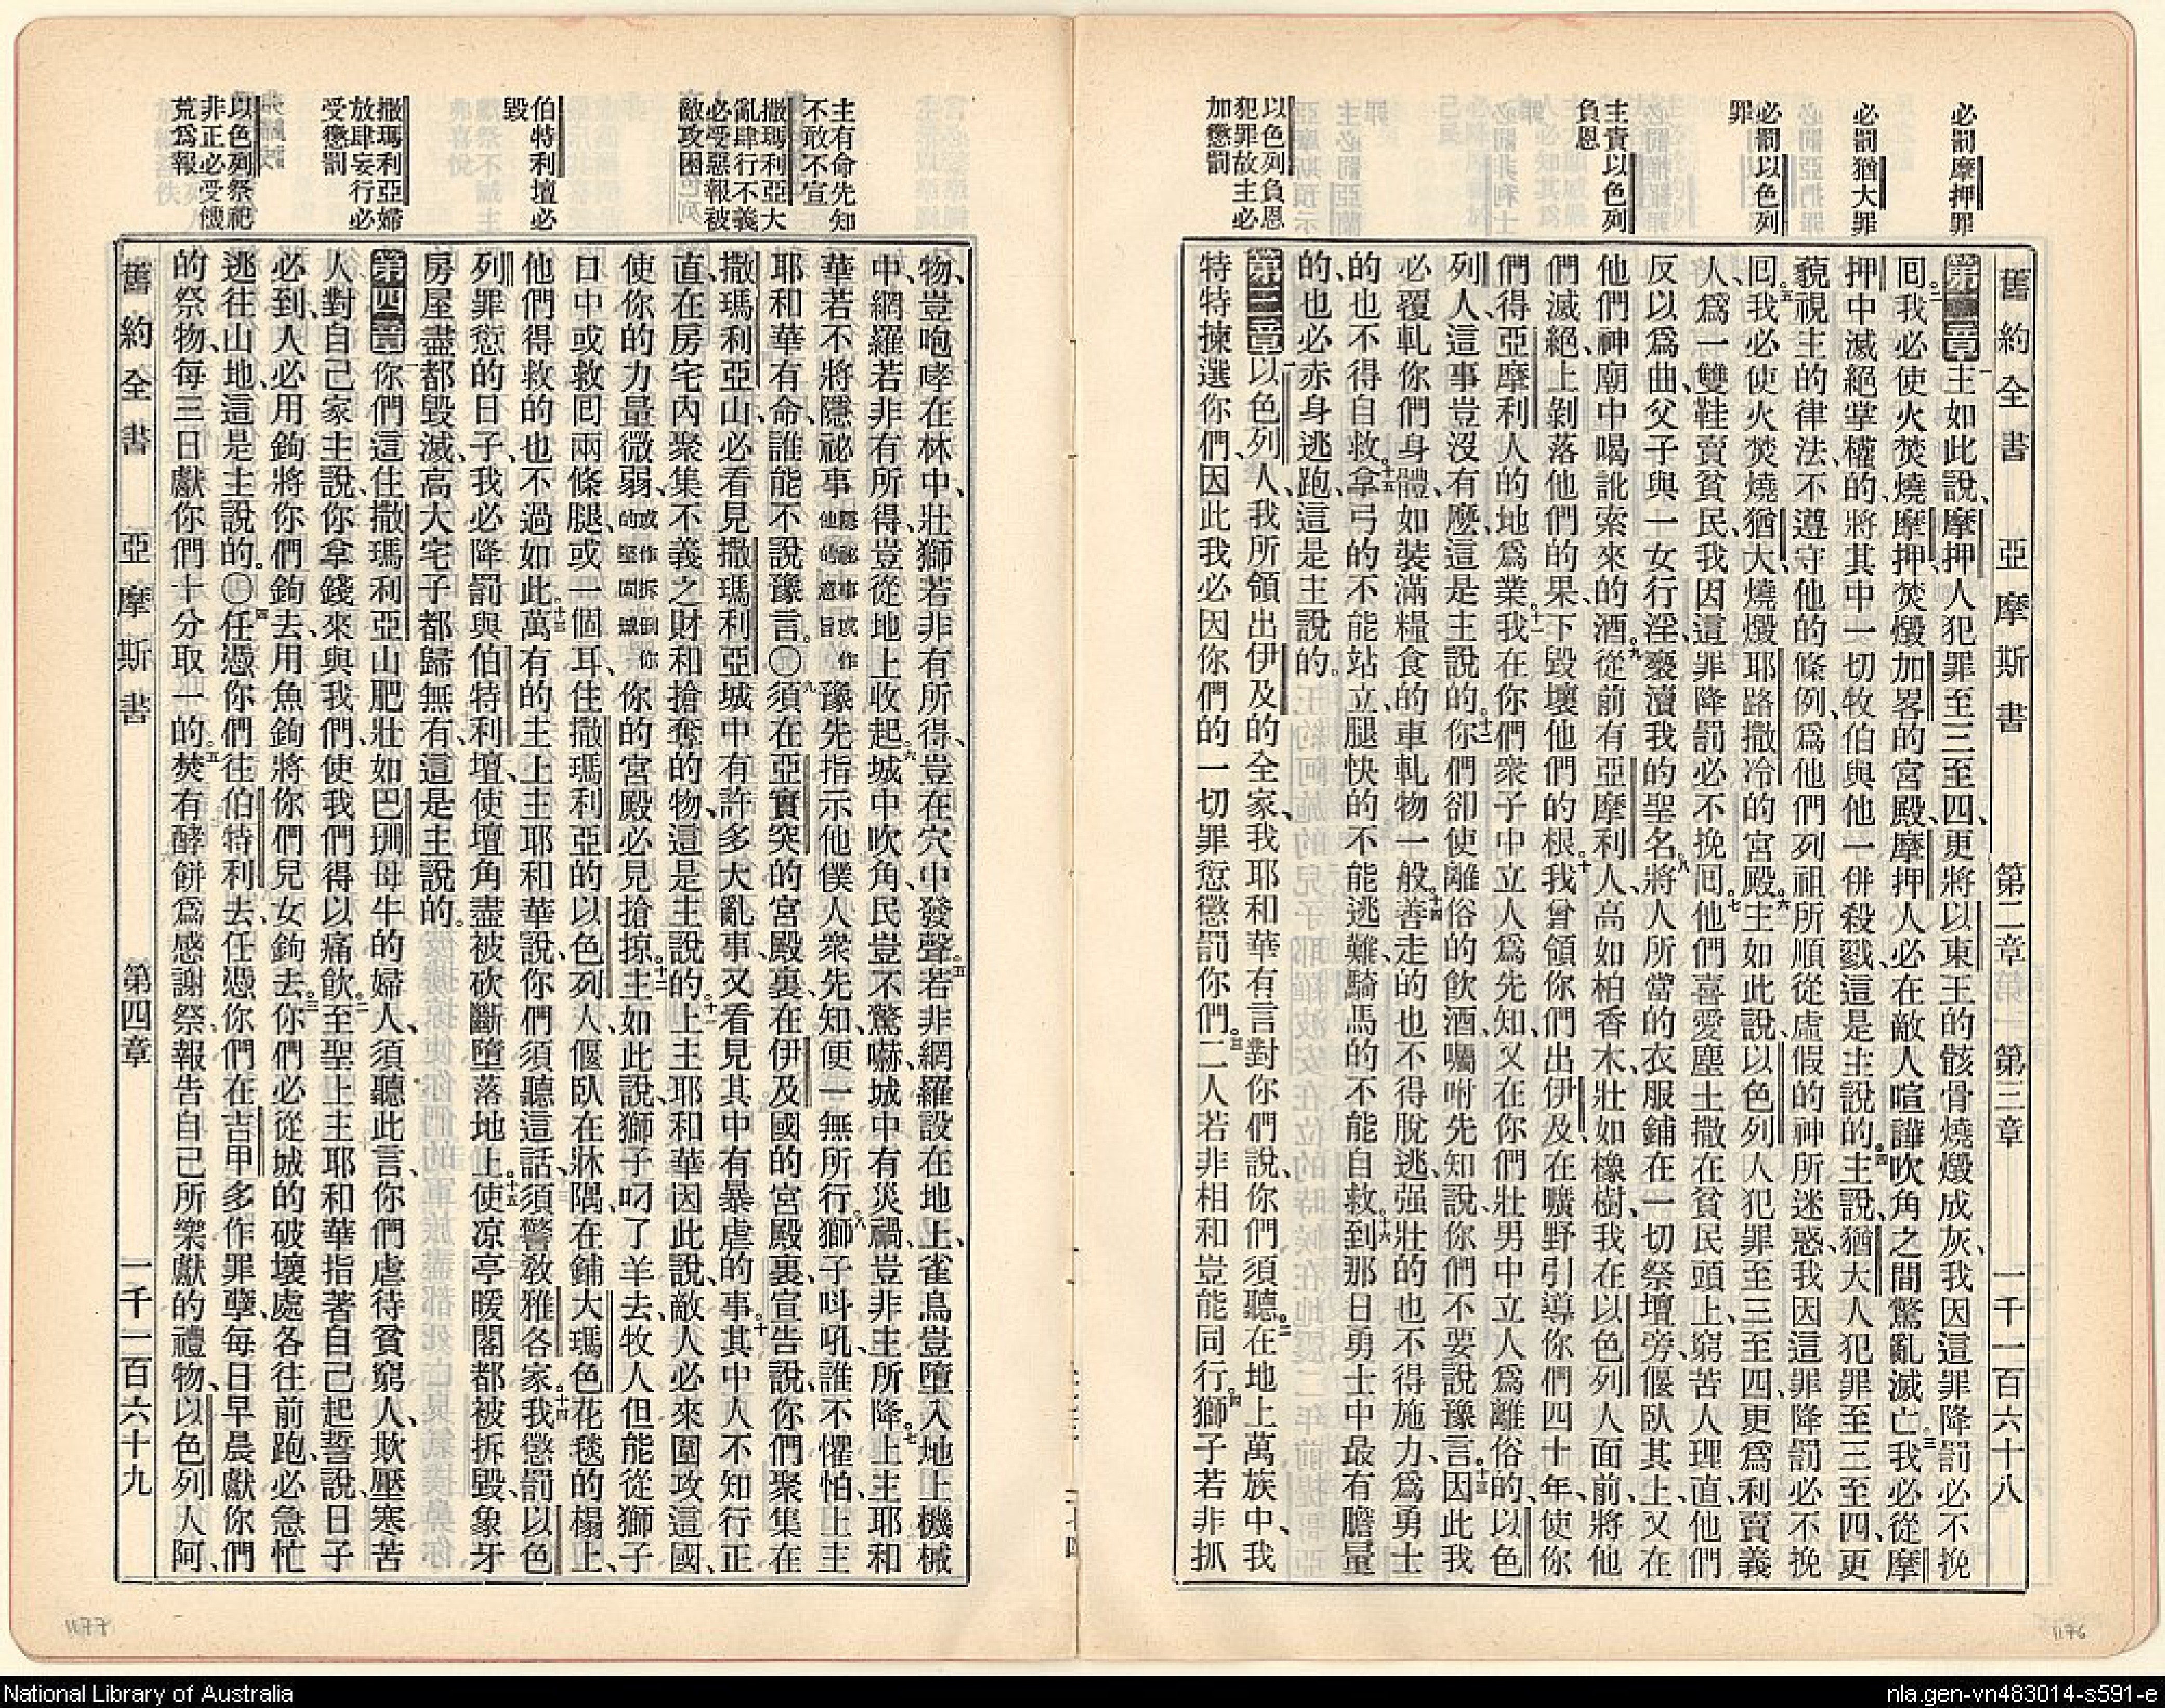 必罰摩押罪
必罰猶大罪
必罰以色列
罪
主責以色列
負恩
以色列負恩
犯罪故主必
加懲罰
舊約全書 亞摩斯書 第二章 第三章 一千一百六十八
第二章一主如此說、摩押人犯罪至三至四、更將以東王的骸骨燒燬成灰、我因這罪降罰必不挽
回。二我必使火焚燒摩押、焚燬加畧的宮殿、摩押人必在敵人喧譁吹角之間驚亂滅亡。三我必從摩
押中滅絕掌權的、將其中一切牧伯與他一併殺戮、這是主說的。四主說、猶大人犯罪至三至四、更
藐視主的律法、不遵守他的條例、爲他們列祖所順從虛假的神所迷惑、我因這罪降罰必不挽
回。五我必使火焚燒猶大、燒燬耶路撒冷的宮殿。六主如此說、以色列人犯罪至三至四、更爲利賣義
人、爲一雙鞋賣貧民、我因這罪降罰必不挽回。七他們喜愛塵土撒在貧民頭上、窮苦人理直、他們
反以爲曲、父子與一女行淫、褻瀆我的聖名。八將人所當的衣服鋪在一切祭壇旁、偃臥其上、又在
他們神廟中喝訛索來的酒。九從前有亞摩利人、高如柏香木、壯如橡樹、我在以色列人面前、將他
們滅絕、上剝落他們的果、下毀壞他們的根。十我曾領你們出伊及、在曠野引導你們四十年、使你
們得亞摩利人的地爲業。十一我在你們衆子中立人爲先知、又在你們壯男中立人爲離俗的、以色
列人這事豈沒有麼、這是主說的。十二你們卻使離俗的飲酒、囑咐先知說、你們不要說豫言。十三因此我
必覆軋你們身體、如裝滿糧食的車軋物一般。十四善走的也不得脫逃、强壯的也不得施力、爲勇士
的也不得自救。十五拿弓的不能站立、腿快的不能逃難、騎馬的不能自救。十六到那日勇士中最有膽量
的也必赤身逃跑、這是主說的。
第三章一以色列人、我所領出伊及的全家、我耶和華有言對你們說、你們須聽。二在地上萬族中、我
特特揀選你們、因此我必因你們的一切罪愆懲罰你們。三二人若非相和、豈能同行。四獅子若非抓
主有命先知
不敢不宣
撒瑪利亞大
亂肆行不義
必受惡報被
敵攻困
伯特利壇必
毀
撒瑪利亞婦
放肆妄行必
受懲罰
以色列祭祀
非正必受饑
荒爲報
物、豈咆哮在林中、壯獅若非有所得、豈在穴中發聲。五若非網羅設在地上、雀鳥豈墮入地上機械
中、網羅若非有所得、豈從地上收起。六城中吹角、民豈不驚嚇、城中有災禍、豈非主所降。七上主耶和
華若不將隱祕事隱祕事或作他的意旨豫先指示他僕人衆先知、便一無所行。八獅子呌吼、誰不懼怕、上主
耶和華有命、誰能不說豫言。〇九須在亞實突的宮殿裏、在伊及國的宮殿裏、宣告說、你們聚集在
撒瑪利亞山、必看見撒瑪利亞城中有許多大亂事、又看見其中有暴虐的事。十其中人不知行正
直、在房宅內聚集不義之財和搶奪的物、這是主說的。十一上主耶和華因此說、敵人必來圍攻這國、
使你的力量微弱、或作拆倒你的堅固城你的宮殿必見搶掠。十二主如此說、獅子叼了羊去、牧人但能從獅子
口中或救回兩條腿、或一個耳、住撒瑪利亞的以色列人、偃臥在牀隅、在鋪大瑪色花毯的榻上、
他們得救的也不過如此。十三萬有的主上主耶和華說、你們須聽這話、須警教雅各家。十四我懲罰以色
列罪愆的日子、我必降罰與伯特利壇、使壇角盡被砍斷墮落地上。十五使凉亭暖閣都被拆毀、象牙
房屋盡都毀滅、高大宅子都歸無有、這是主說的。
第四章一你們這住撒瑪利亞山肥壯如巴珊母牛的婦人、須聽此言、你們虐待貧窮人、欺壓寒苦
人、對自己家主說、你拿錢來與我們、使我們得以痛飲。二至聖上主耶和華指著自己起誓說、日子
必到、人必用鉤將你們鉤去、用魚鉤將你們兒女鉤去。三你們必從城的破壞處各往前跑、必急忙
逃往山地、這是主說的。〇四任憑你們往伯特利去、任憑你們在吉甲多作罪孽、每日早晨獻你們
的祭物、每三日獻你們十分取一的。五焚有酵餅爲感謝祭、報告自己所樂獻的禮物、以色列人阿、
舊約全書 亞摩斯書 第四章 一千一百六十九
1177
1176
National Library of Australia
nla.gen-vn483014-s591-e